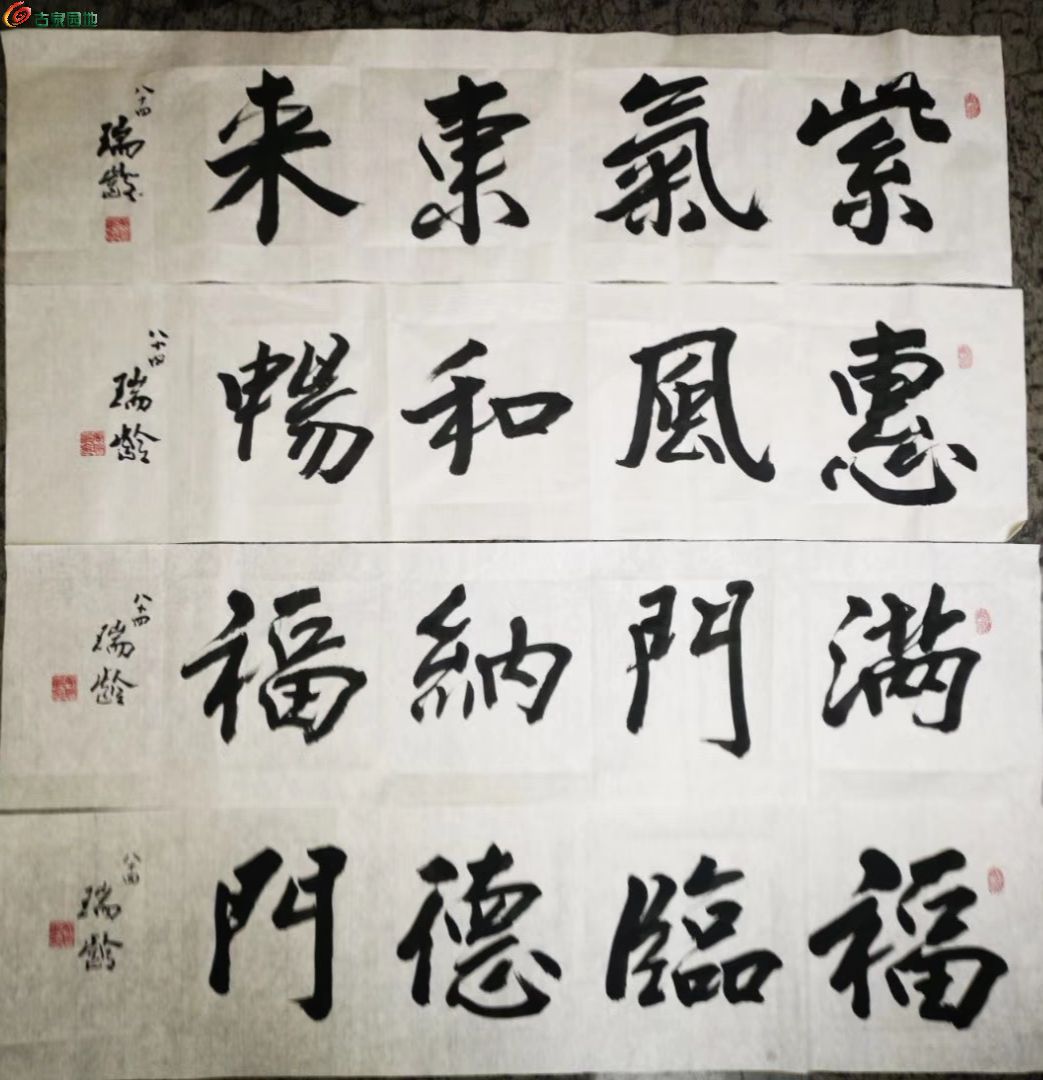 古泉园地
紫氣東来
八十四
瑞齡
惠風和暢
八十四
瑞齡
满門納福
八十四
瑞齡
福臨德門
八十四
瑞齡